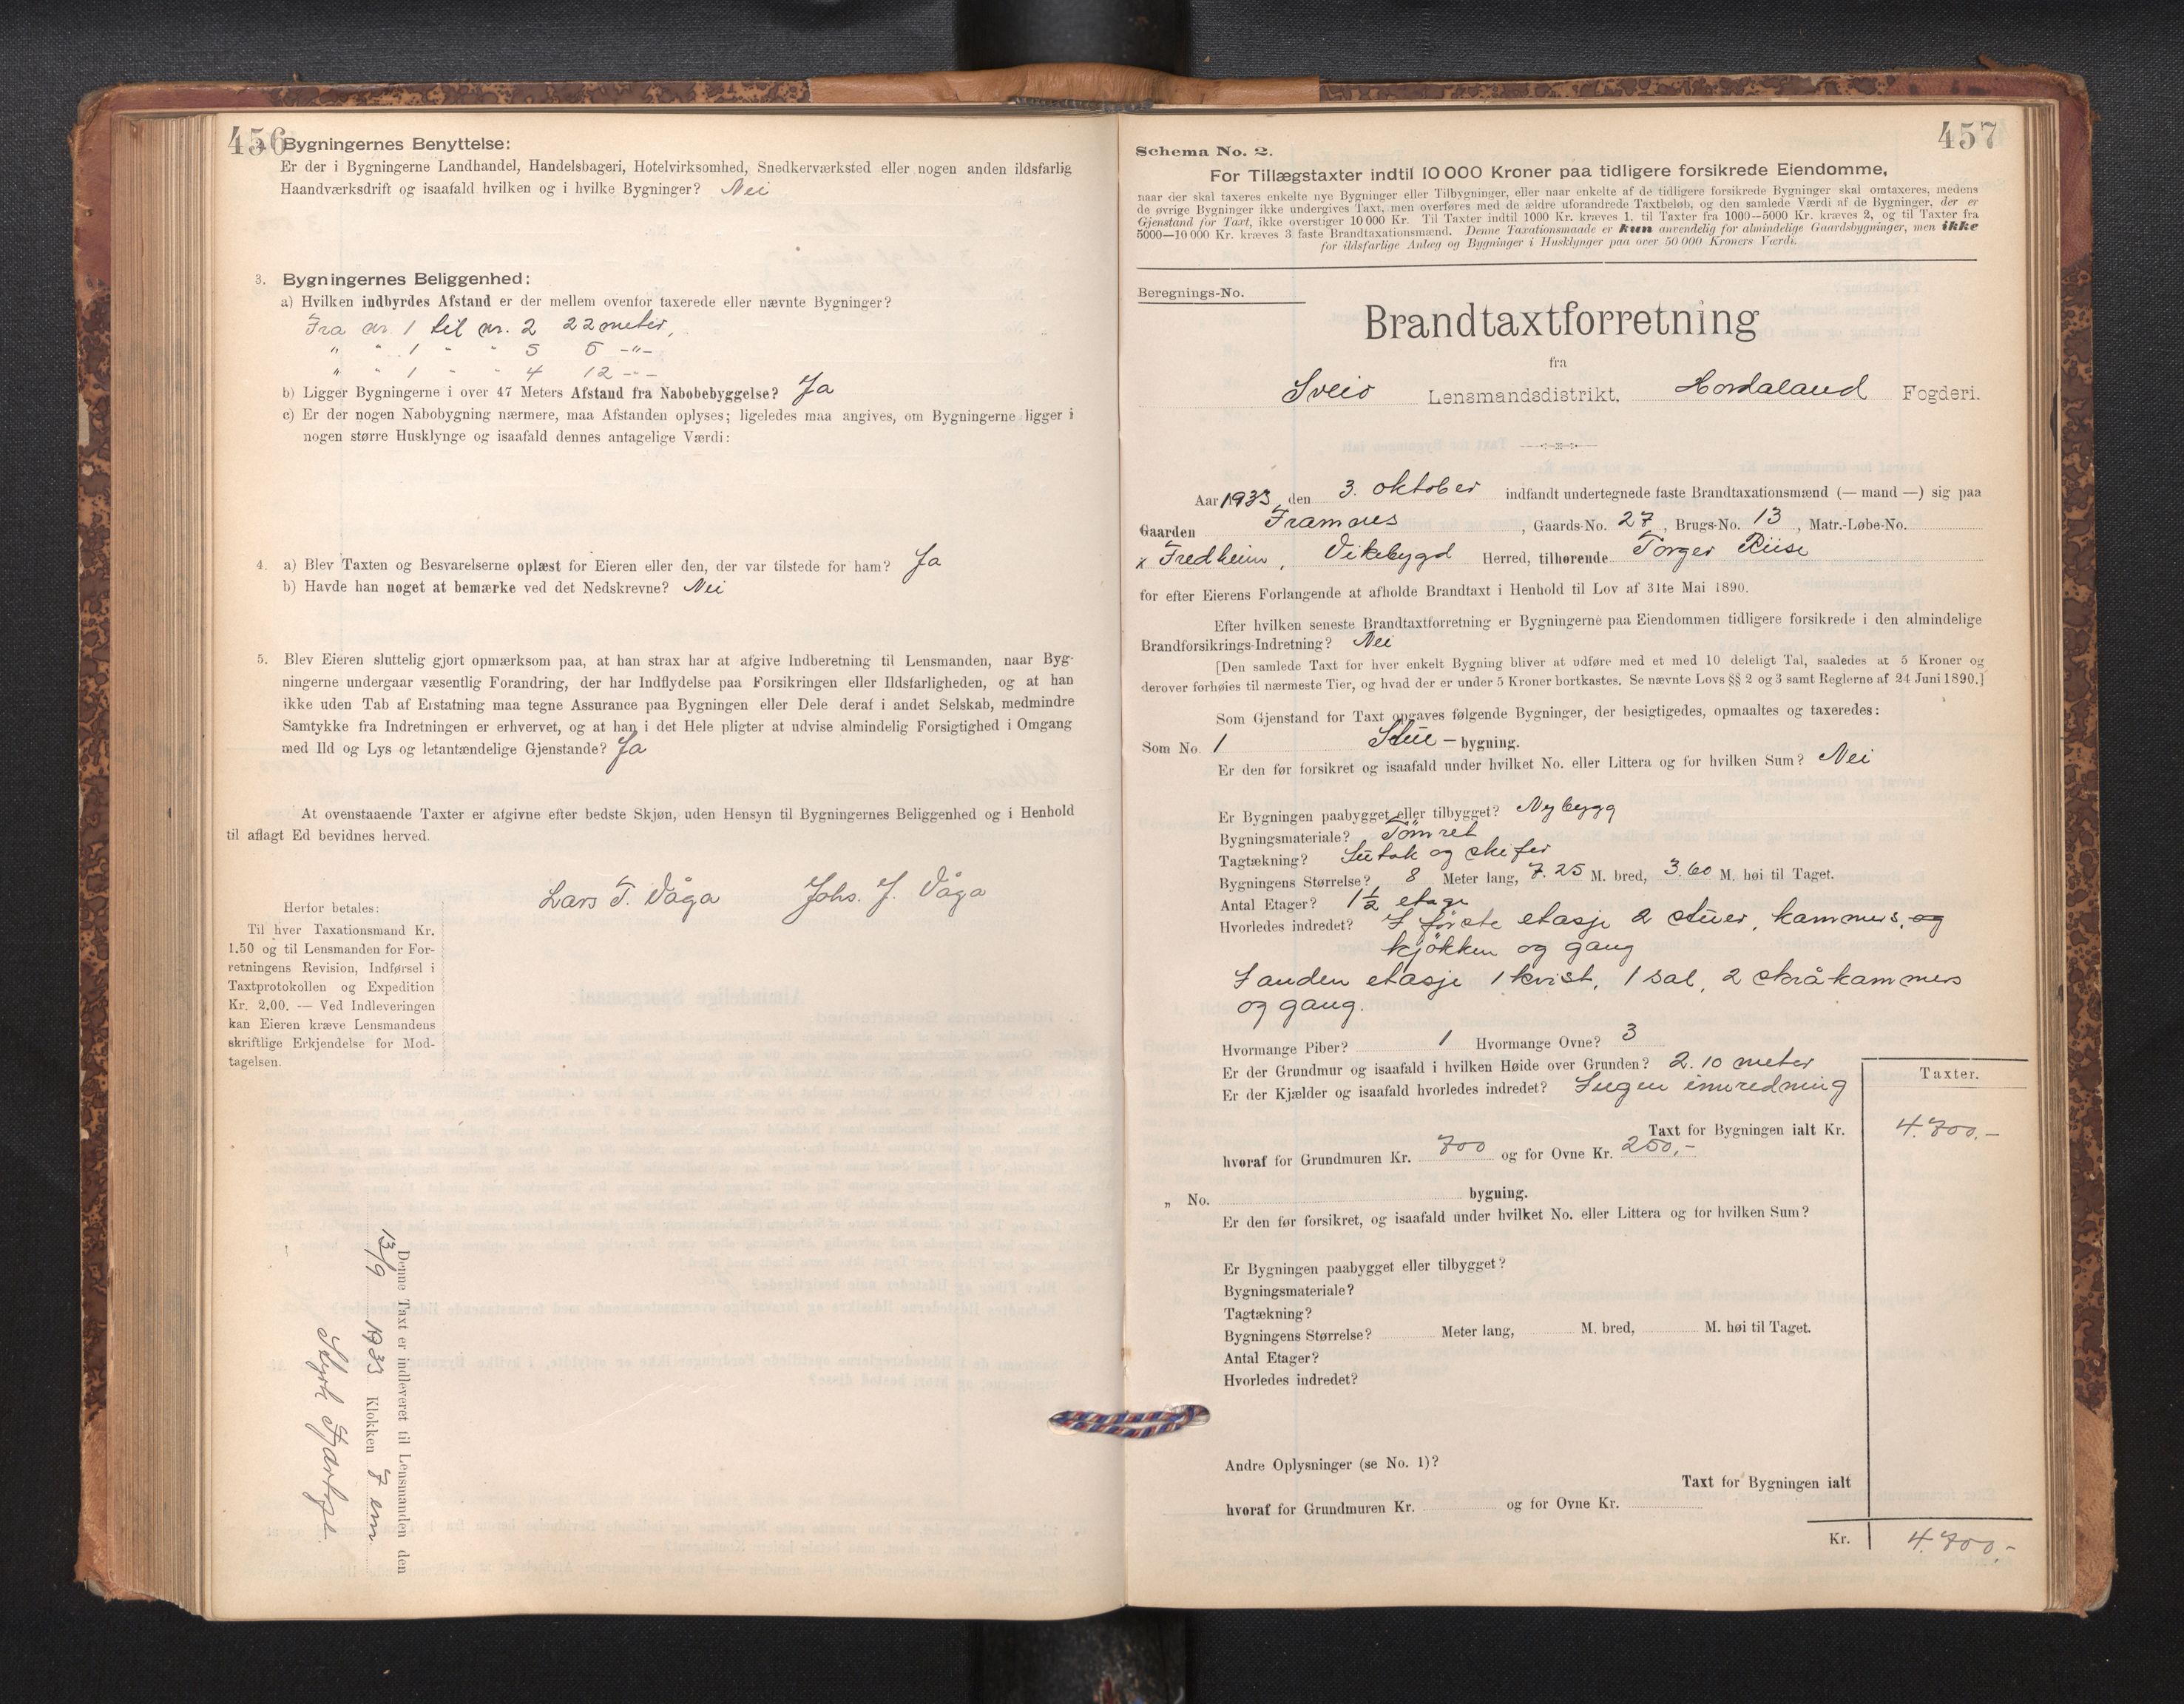 456
2. Bygningernes Benyttelse:
Er der i Bygningerne Landhandel, Handelsbageri, Hotelvirksomhed, Snedkerværksted eller nogen anden ildsfarlig
Haandværksdrift og isaafald hvilken og i hvilke Bygninger? Nei
3. Bygningernes Beliggenhed:
a) Hvilken indbyrdes Afstand er der mellem ovenfor taxerede eller nævnte Bygninger?
Fra nr. 1 til nr. 2 22 meter,
" " 1 " " 5 5 -"-
" " 1 " " 4 12 -"-
b) Ligger Bygningerne i over 47 Meters Afstand fra Nabobebyggelse? Ja
c) Er der nogen Nabobygning nærmere, maa Afstanden oplyses; ligeledes maa angives, om Bygningerne ligger i
nogen større Husklynge og isaafald dennes antagelige Værdi:
4. a) Blev Taxten og Besvarelserne oplæst for Eieren eller den, der var tilstede for ham? Ja
b) Havde han noget at bemærke ved det Nedskrevne? Nei
5. Blev Eieren sluttelig gjort opmærksom paa, at han strax har at afgive Indberetning til Lensmanden, naar Byg-
ningerne undergaar væsentlig Forandring, der har Indflydelse paa Forsikringen eller Ildsfarligheden, og at han
ikke uden Tab af Erstatning maa tegne Assurance paa Bygningen eller Dele deraf i andet Selskab, medmindre
Samtykke fra Indretningen er erhvervet, og at han i det Hele pligter at udvise almindelig Forsigtighed i Omgang
med Ild og Lys og letantændelige Gjenstande? Ja
At ovenstaaende Taxter er afgivne efter bedste Skjøn, uden Hensyn til Bygningernes Beliggenhed og i Henhold
til aflagt Ed bevidnes herved.
Lars T. Våga Johs. J. Våga
Herfor betales:
Til hver Taxationsmand Kr.
1.50 og til Lensmanden for For-
retningens Revision, Indførsel i
Taxtprotokollen og Expedition
Kr. 2.00. — Ved Indleveringen
kan Eieren kræve Lensmandens
skriftlige Erkjendelse for Mod-
tagelsen.
Denne Taxt er indleveret til Lensmanden den
13/9 1933 Klokken 7 em.
457
Schema No. 2.
For Tillægstaxter indtil 10 000 Kroner paa tidligere forsikrede Eiendomme,
naar der skal taxeres enkelte nye Bygninger eller Tilbygninger, eller naar enkelte af de tidligere forsikrede Bygninger skal omtaxeres, medens
de øvrige Bygninger ikke undergives Taxt, men overføres med de ældre uforandrede Taxtbeløb, og den samlede Værdi af de Bygninger, der er
Gjenstand for Taxt, ikke overstiger 10 000 Kr. Til Taxter indtil 1000 Kr. kræves 1, til Taxter fra 1000—5000 Kr. kræves 2, og til Taxter fra
5000—10 000 Kr. kræves 3 faste Brandtaxationsmænd. Denne Taxationsmaade er kun anvendelig for almindelige Gaardsbygninger, men ikke
for ildsfarlige Anlæg og Bygninger i Husklynger paa over 50 000 Kroners Værdi.
Beregnings-No.
Brandtaxtforretning
fra
Sveio Lensmandsdistrikt, Hordaland Fogderi.
Aar 1933, den 3. oktober indfandt undertegnede faste Brandtaxationsmænd (— mand —) sig paa
Gaarden Framnes, Gaards-No. 27, Brugs-No. 13, Matr.-Løbe-No.
x Fredheim, Vikebygd Herred, tilhørende Torger Riise
for efter Eierens Forlangende at afholde Brandtaxt i Henhold til Lov af 31te Mai 1890.
Efter hvilken seneste Brandtaxtforretning er Bygningerne paa Eiendommen tidligere forsikrede i den almindelige
Brandforsikrings-Indretning? Nei
[Den samlede Taxt for hver enkelt Bygning bliver at udføre med et med 10 deleligt Tal, saaledes at 5 Kroner og
derover forhøies til nærmeste Tier, og hvad der er under 5 Kroner bortkastes. Se nævnte Lovs §§ 2 og 3 samt Reglerne af 24 Juni 1890.]
Som Gjenstand for Taxt opgaves følgende Bygninger, der besigtigedes, opmaaltes og taxeredes:
Som No. 1 Stue — bygning.
Er den før forsikret og isaafald under hvilket No. eller Littera og for hvilken Sum? Nei
Er Bygningen paabygget eller tilbygget? Nybygg
Bygningsmateriale? Tömret
Tagtækning? Sutak og skifer
Bygningens Størrelse? 8 Meter lang, 7.25 M. bred, 3.60 M. høi til Taget.
Antal Etager? 1½ etage
Hvorledes indredet? I förste etasje 2 stuer, kammers, og
kjökken og gang
I anden etasje 1 kvist, 1 sal, 2 skråkammers
og gang.
Hvormange Piber? 1 Hvormange Ovne? 3
Er der Grundmur og isaafald i hvilken Høide over Grunden? 2.10 meter
Er der Kjælder og isaafald hvorledes indredet? Ingen innredning
Taxter.
Taxt for Bygningen ialt Kr. 4.700.-
hvoraf for Grundmuren Kr. 700 og for Ovne Kr. 250,-
„ No. bygning.
Er den før forsikret, og isaafald under hvilket No. eller Littera og for hvilken Sum?
Er Bygningen paabygget eller tilbygget?
Bygningsmateriale?
Tagtækning?
Bygningens Størrelse? Meter lang, M. bred, M. høi til Taget.
Antal Etager?
Hvorledes indredet?
Andre Oplysninger (se No. 1)?
Taxt for Bygningen ialt
hvoraf for Grundmuren Kr. og for Ovne Kr.
Kr. 4.700.-